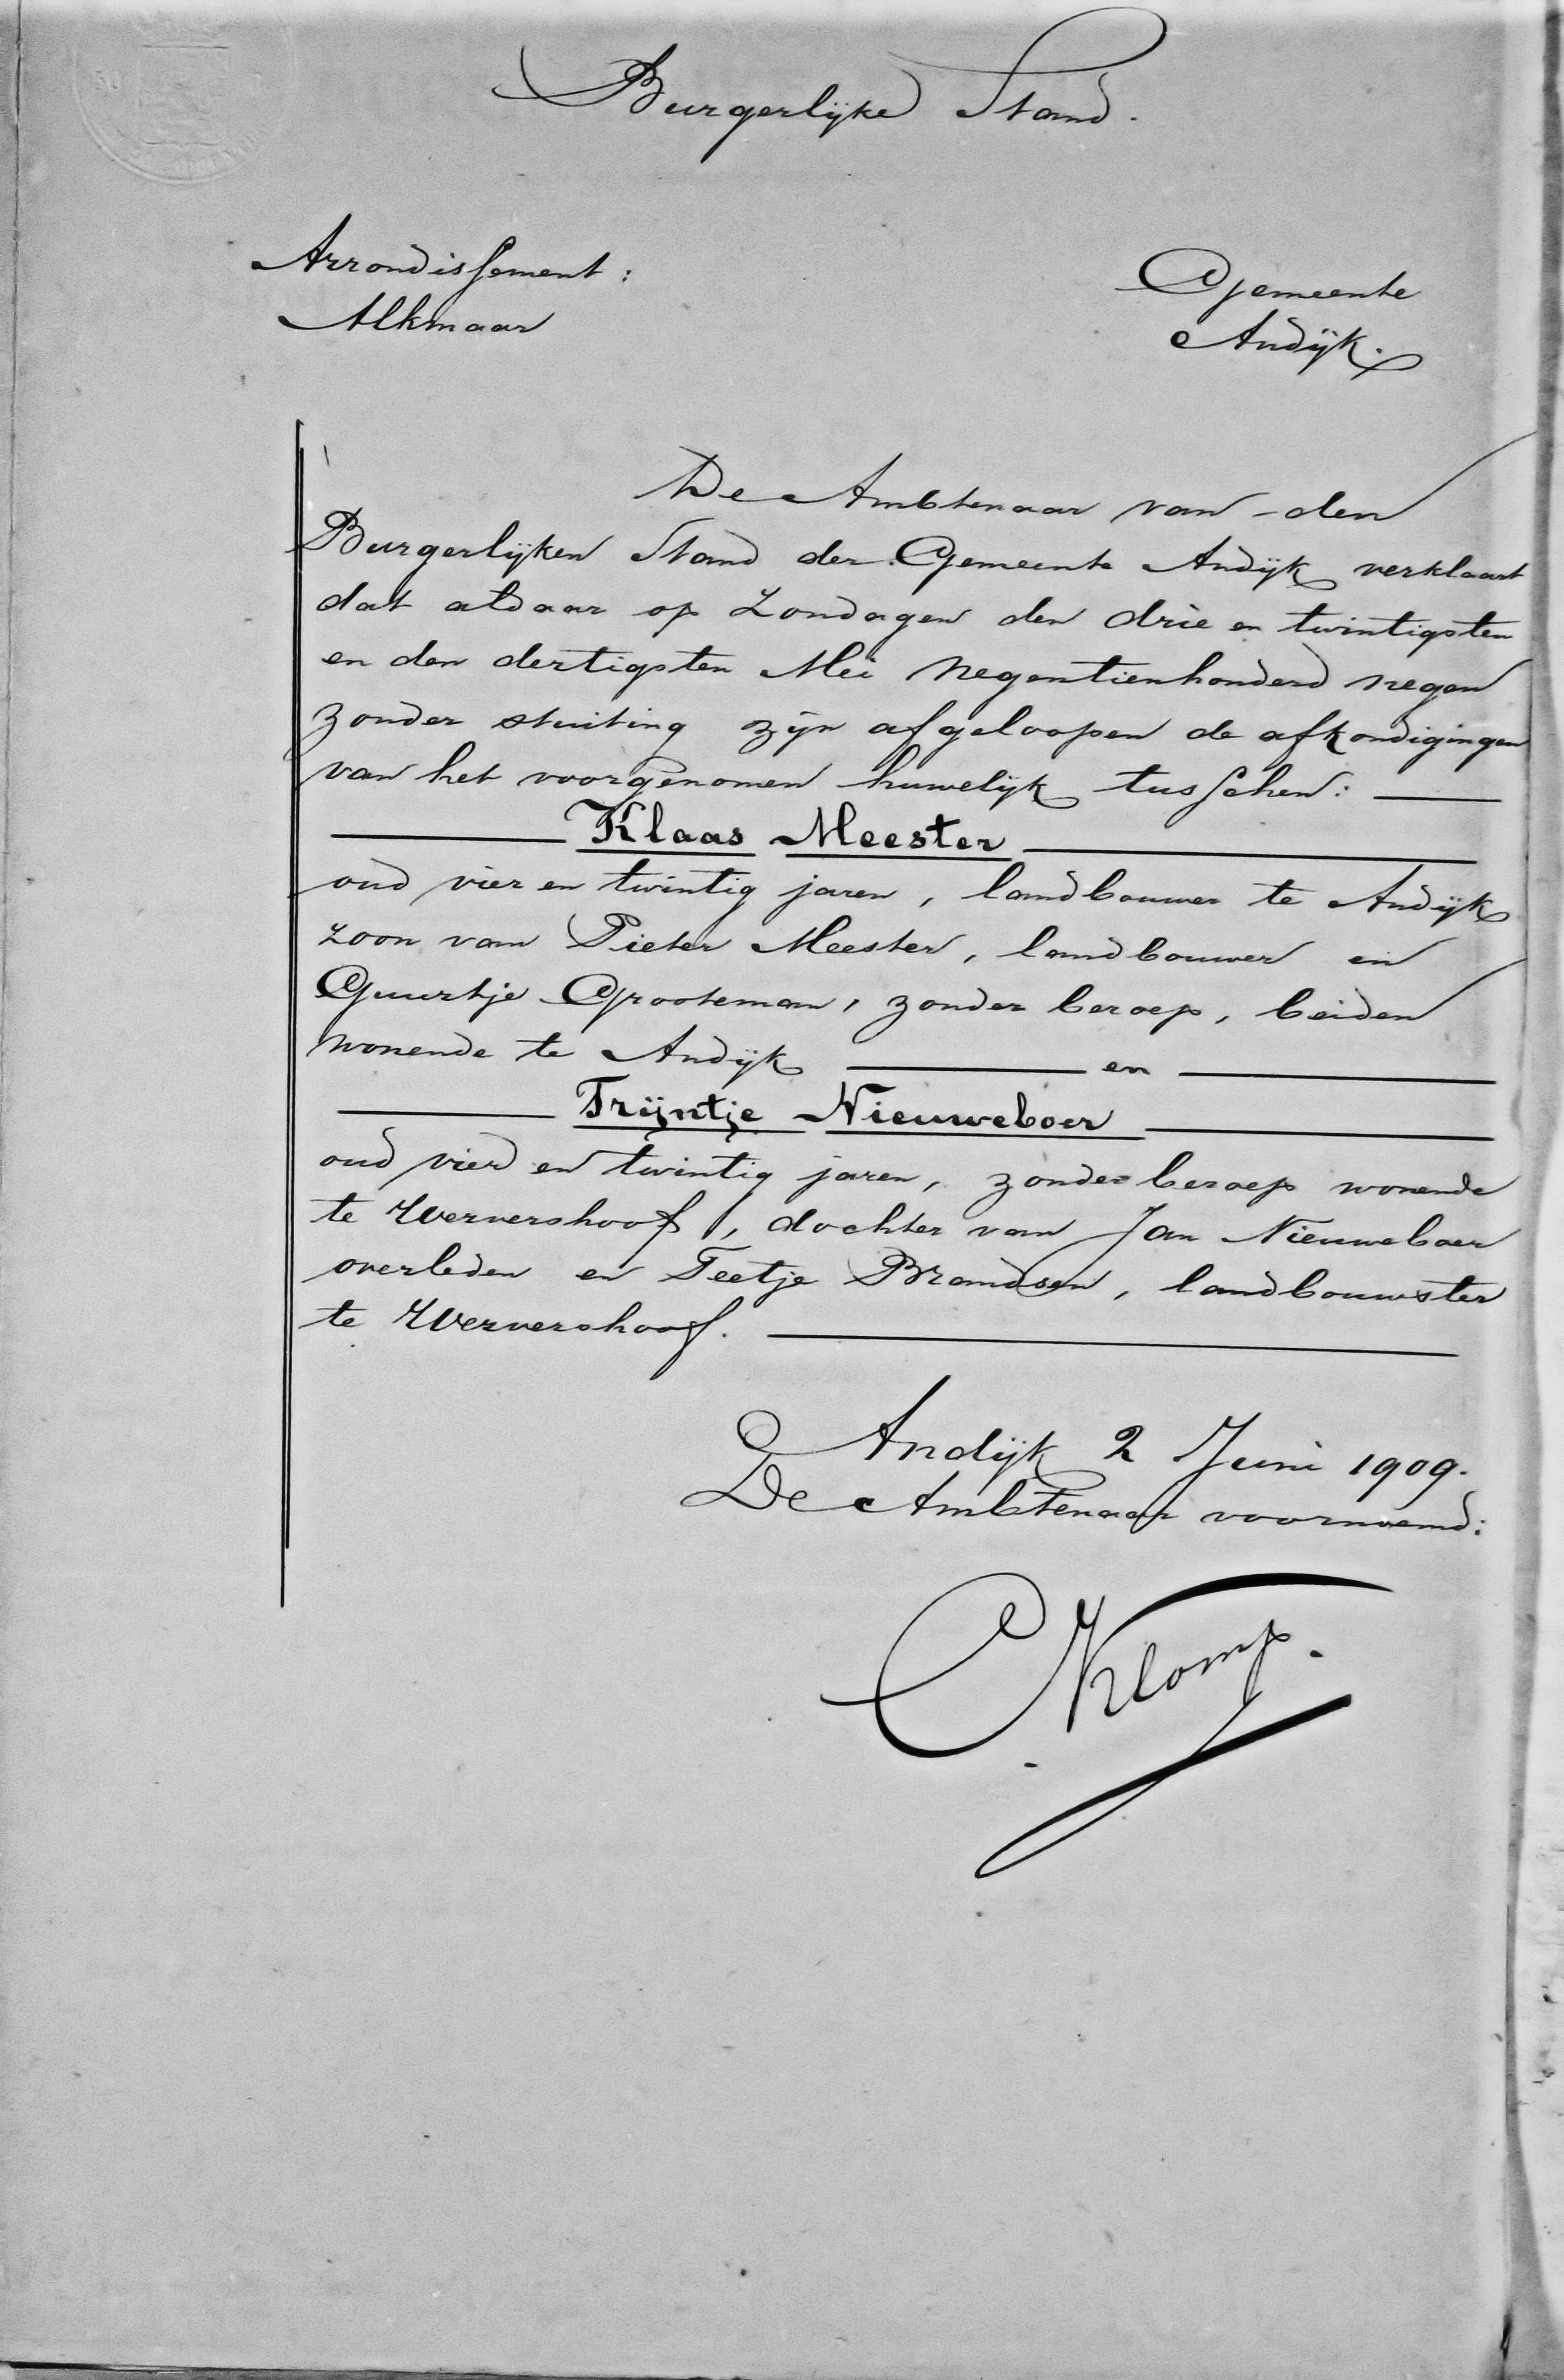 Burgerlijke Stand.
Arrondissement:
Alkmaar
Gemeente
Andijk.
De Ambtenaar van den
Burgerlijken Stand der Gemeente Andijk verklaart
dat aldaar op Zondagen den drie en twintigsten
en den dertigsten Mei negentienhonderd negen
zonder stuiting zijn afgeloopen de afkondigingen
van het voorgenomen huwelijk tusschen:
Klaas Meester
oud vier en twintig jaren, landbouwer te Andijk
zoon van Pieter Meester, landbouwer en
Guurtje Grooteman, zonder beroep, beiden
wonende te Andijk en
Trijntje Nieuweboer
oud vier en twintig jaren, zonder beroep wonende
te Wervershoof, dochter van Jan Nieuweboer
overleden en Teetje Brandsen, landbouwster
te Wervershoof.
Andijk 2 Juni 1909.
De Ambtenaar voornoemd:
C Klomp.